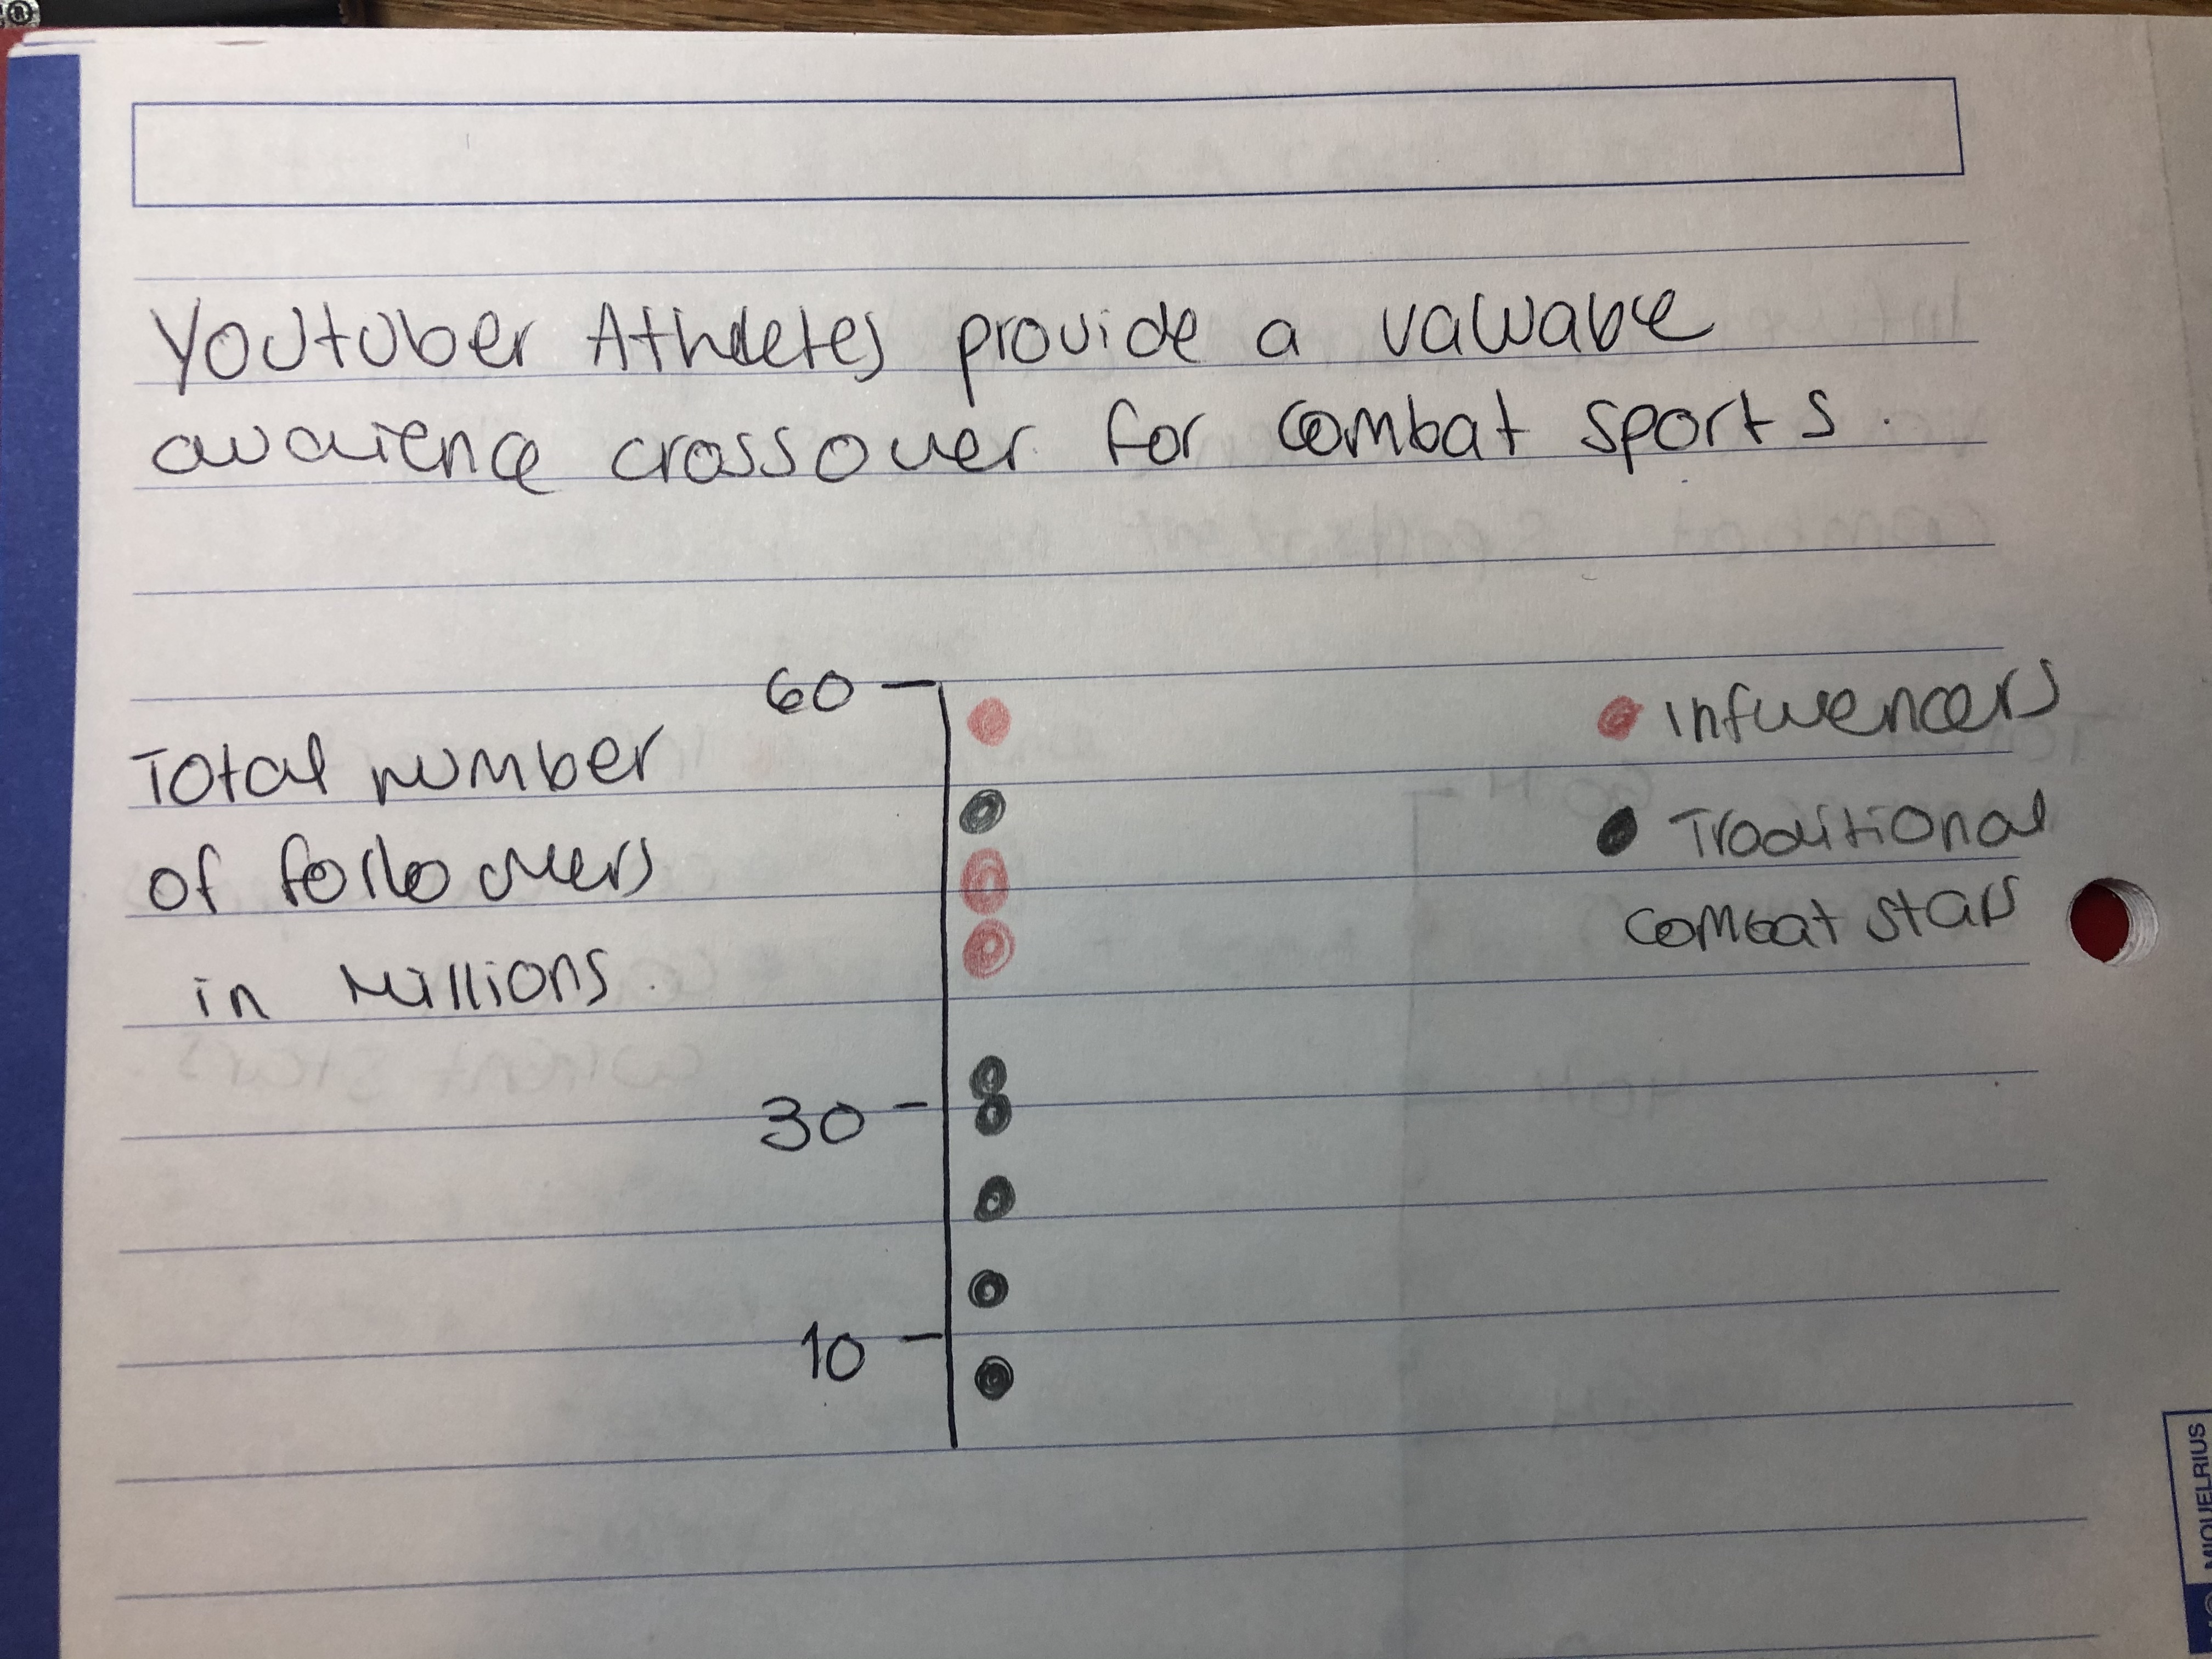 Youtuber Athletes provide a valuable
audience crossover for combat sports.
60
Total number
of followers
in Millions.
Influencers
Traditional
combat stars
30
10
MIQUELRIUS
®